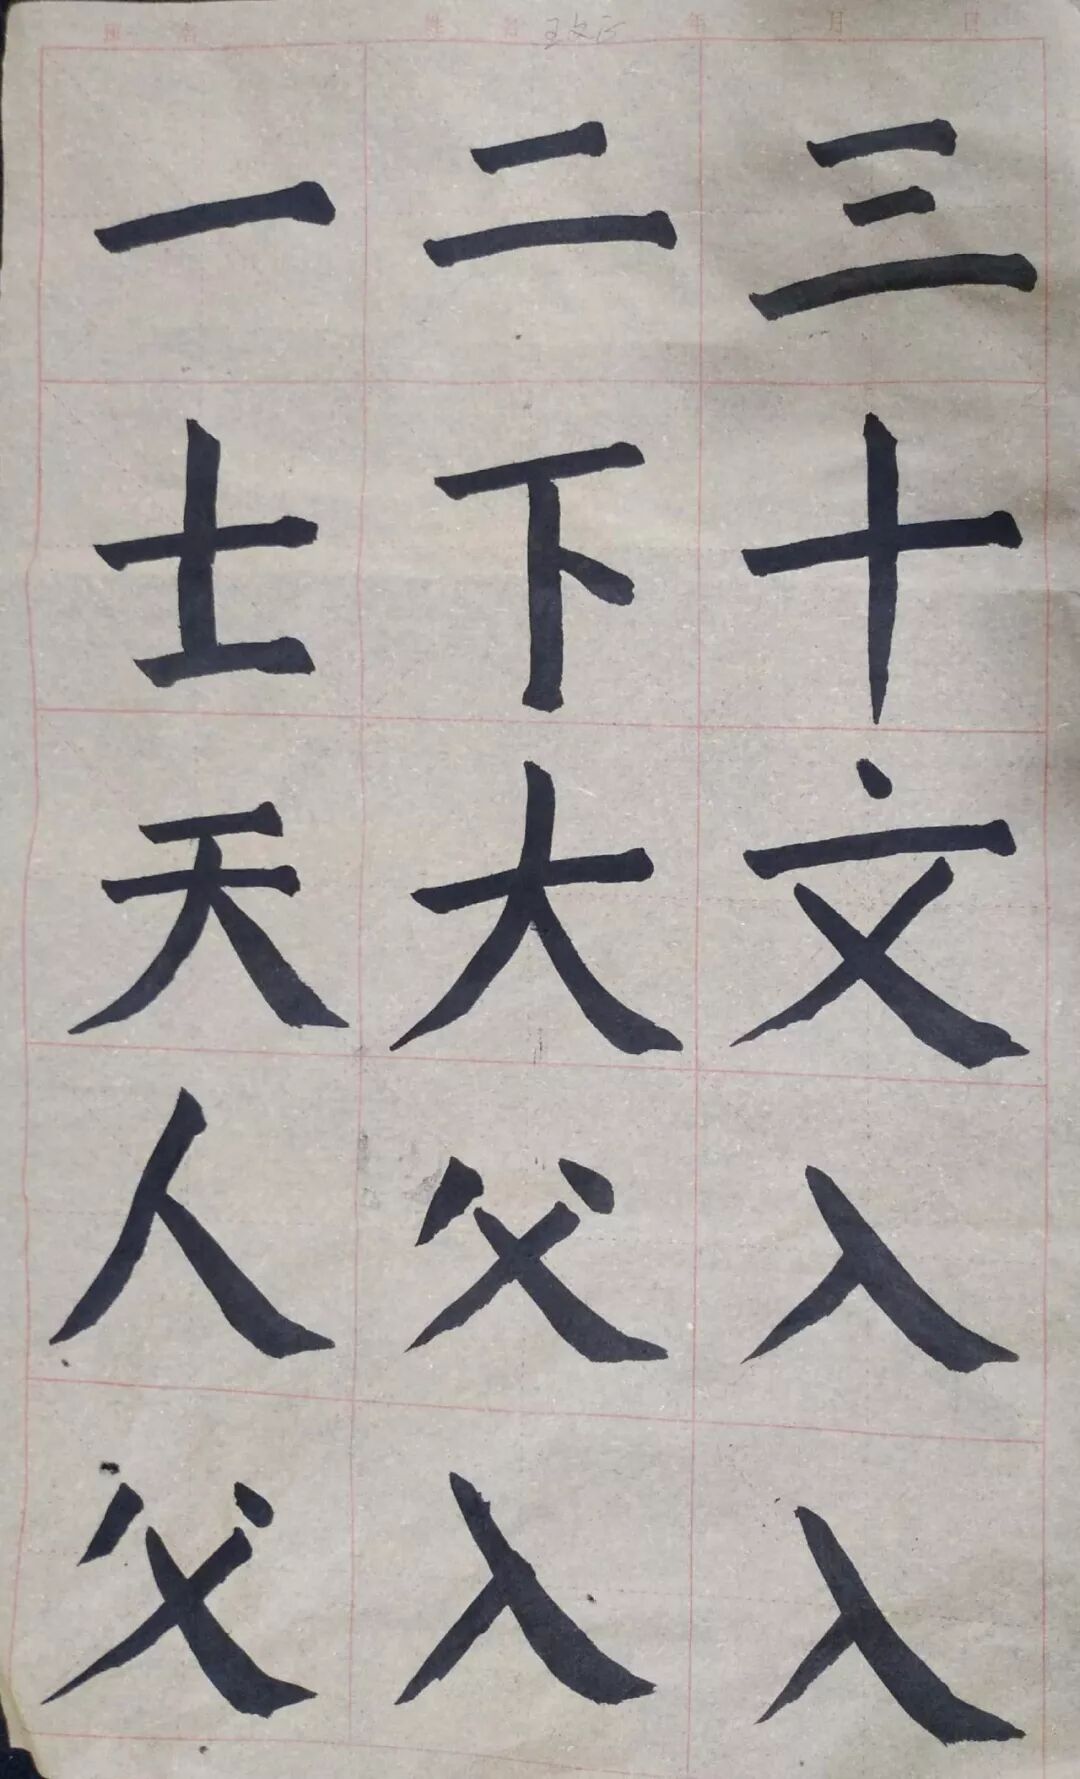 姓名 王文 年 月 日
一 二 三
士 下 十
天 大 文
人 父 入
父 入 入